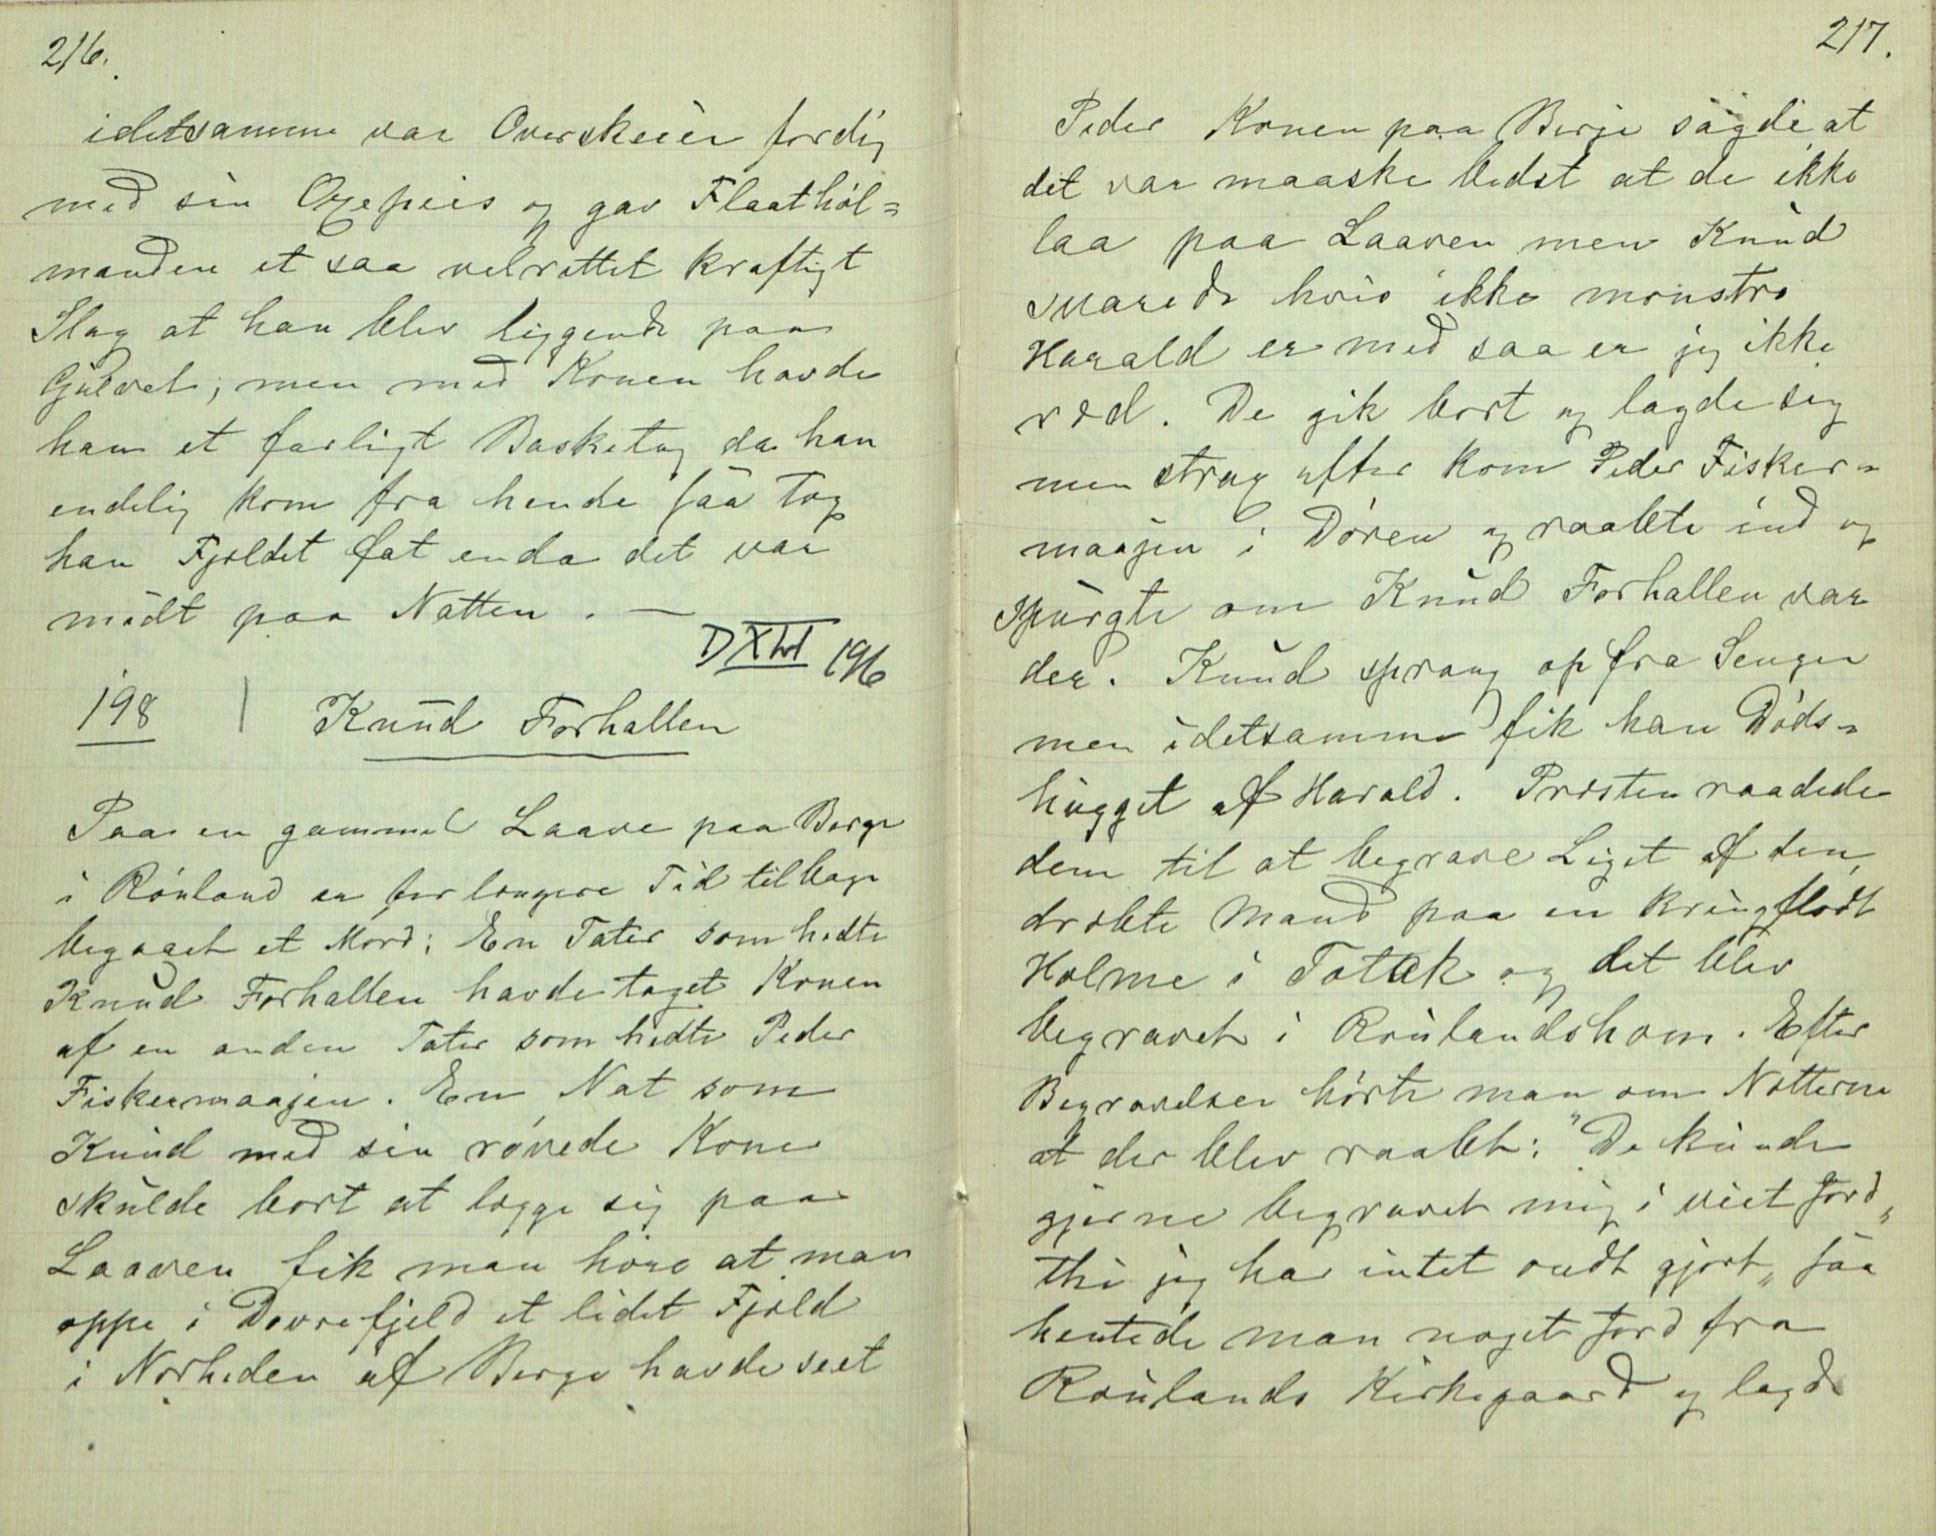 216.
idetsamme var Overskeier færdig
med sin Oxepeis og gav Flaathøl=
manden et saa velrettet kraftigt
Slag at han blev liggende paa
Gulvet, men med Konen havde
han et farligt Basketag da han
endelig kom fra hende saa tog
han Fjeldet fat enda det var
midt paa Natten. —
D XIII 196
198 | Knud Forhallen
Paa en gammel Laave paa Berge
i Rauland er for længere Tid tilbage
begaaet et Mord: En Tater som hedte
Knud Forhallen havde taget Konen
af en anden Tater som hedte Peder
Fiskermaajen. En Nat som
Knud med sin røvede Kone
skulde bort at lægge sig paa
Laaven fik man høre at man
oppe i Dovrefjeld et lidet Fjeld
i Nærheden af Berge havde seet
217.
Peder Konen paa Berge sagde at
det var maaske bedst at de ikke
laa paa Laaven men Knud
svarede hvis ikke monstro
Harald er med saa er jeg ikke
ræd. De gik bort og lagde sig
men strax efter kom Peder Fisker=
maajen i Døren og raabte ind og
spurgte om Knud Forhallen var
der. Knud sprang op fra Sengen
men idetsamme fik han Døds=
hugget af Harald. Præsten raadede
dem til at begrave Liget af den
dræbte Mand paa en kringflødt
Holme i Totak og det blev
begravet i Raulandsholm. Efter
Begravelsen hørte man om Nætterne
at der blev raabt: "De kunde
gjerne begravet mig i viet Jord"
thi jeg har intet ondt gjort" saa
hentede man noget Jord fra
Raulands Kirkegaard og lagde